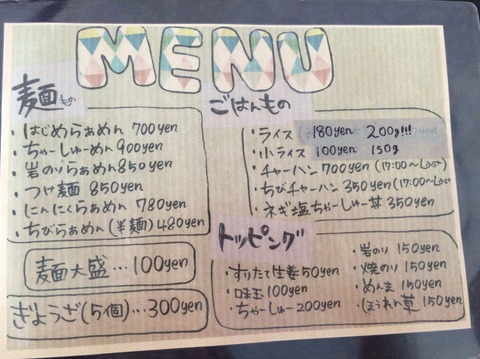 MENU
麺もの
・はじめらぁめん 700yen
・ちゃーしゅーめん 900yen
・岩のりらぁめん 850yen
・つけ麺 850yen
・にんにくらぁめん 780yen
・ちびらぁめん(半麺) 480yen
麺大盛…100yen
ぎょうざ(5個)…300yen
ごはんもの
・ライス 180yen 200g!!!
・小ライス 100yen 150g
・チャーハン 700yen (17:00〜Last)
・ちびチャーハン 350yen (17:00〜Last)
・ネギ塩ちゃーしゅー丼 350yen
トッピング
・すりたて生姜 50yen
・味玉 100yen
・ちゃーしゅー 200yen
・岩のり 150yen
・焼のり 150yen
・めんま 150yen
・ほうれん草 150yen